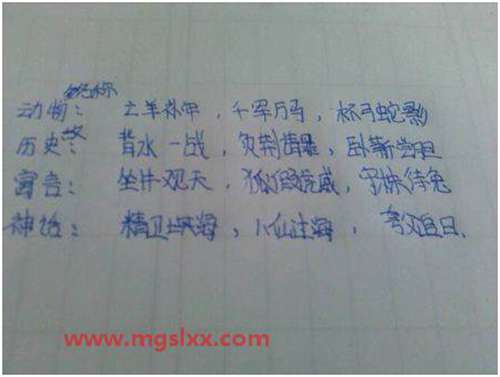 动物: 亡羊补牢, 千军万马, 杯弓蛇影
历史: 背水一战, 负荆请罪, 卧薪尝胆
寓言: 坐井观天, 狐假虎威, 守株待兔
神话: 精卫填海, 八仙过海, 夸父追日.
www.mgslxx.com